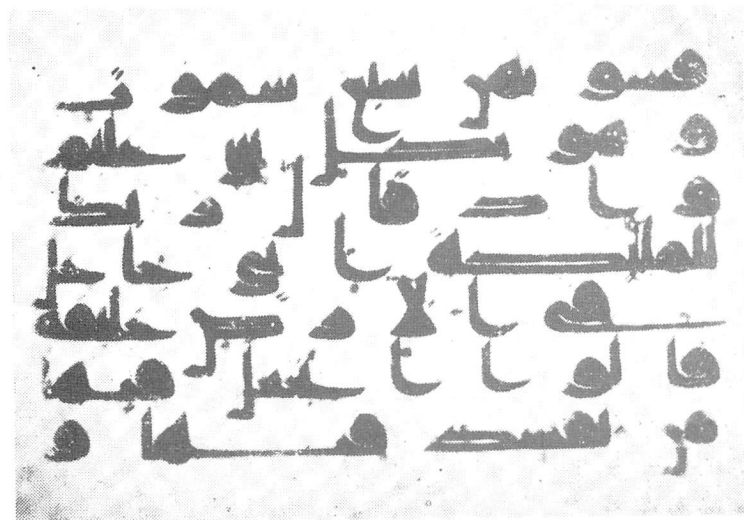 فسو يهن سبع سموت
و هو بكل شى عليم
و اذ قال ربك
للملئكة انى جاعل
فى الارض خليفة
قالوا اتجعل فيها
من يفسد فيها و